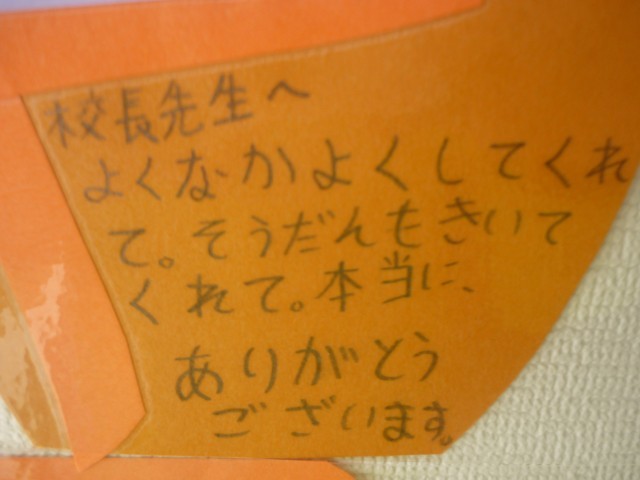 校長先生へ
よくなかよくしてくれ
て。そうだんもきいて
くれて。本当に、
ありがとう
ございます。